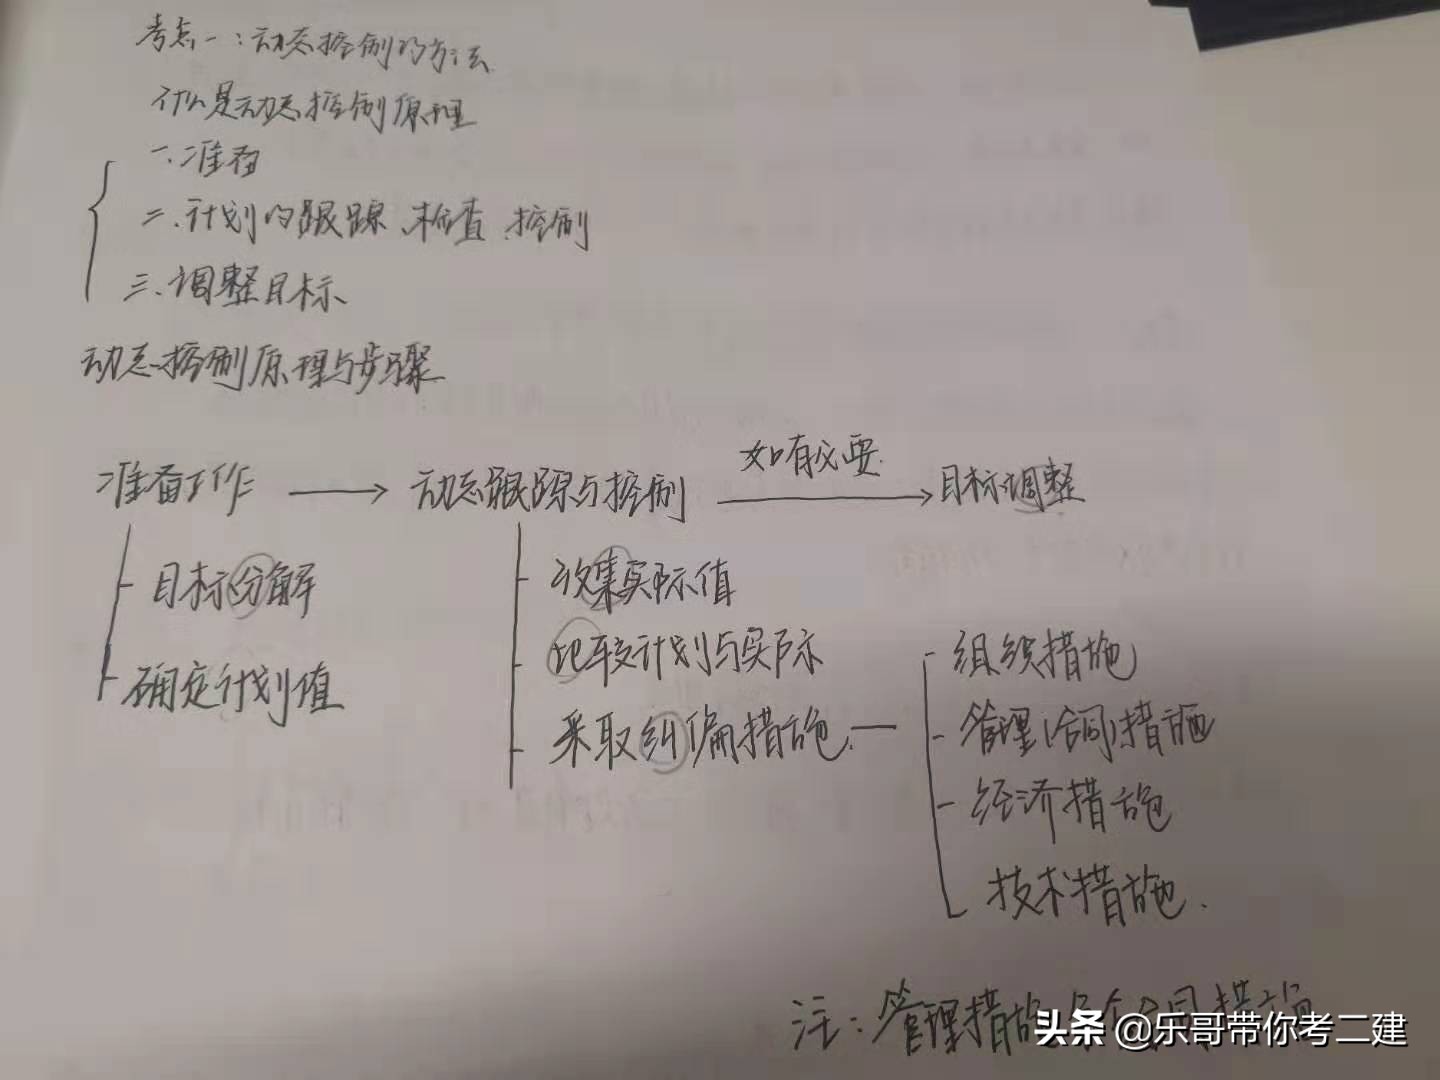 考点一：动态控制的方法
什么是动态控制原理
一.准备
二.计划的跟踪、检查、控制
三.调整目标、
动态控制原理与步骤
准备工作 → 动态跟踪与控制 如有必要 → 目标调整
目标分解
确定计划值
收集实际值
比较计划与实际
采取纠偏措施.
组织措施
管理(合同)措施
经济措施
技术措施.
注：管理措施
头条 @乐哥带你考二建